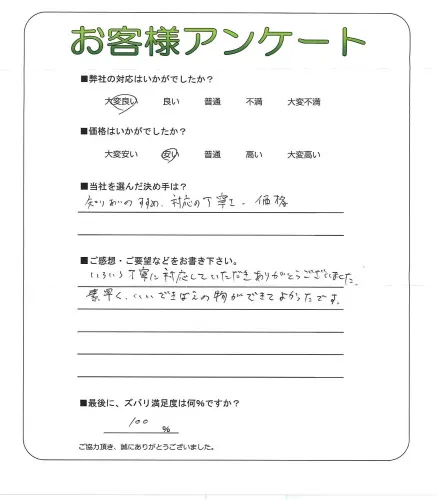 お客様アンケート
■弊社の対応はいかがでしたか?
大変良い 良い 普通 不満 大変不満
■価格はいかがでしたか?
大変安い 安い 普通 高い 大変高い
■当社を選んだ決め手は?
知りあいのすすめ、対応の丁寧さ、価格
■ご感想・ご要望などをお書き下さい。
いろいろ丁寧に対応していただきありがとうございました。
素早く、いいできばえの物ができてよかったです。
■最後に、ズバリ満足度は何%ですか?
100 %
ご協力頂き、誠にありがとうございました。